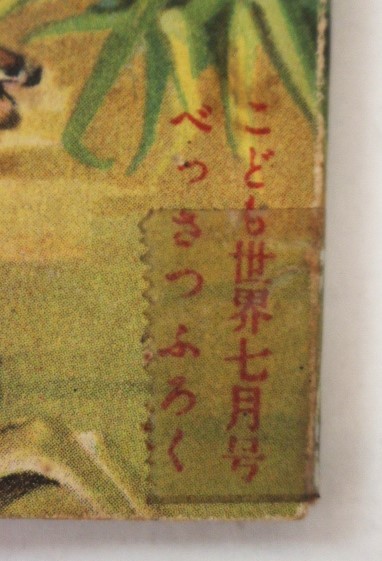 こども世界七月号
べっさつふろく